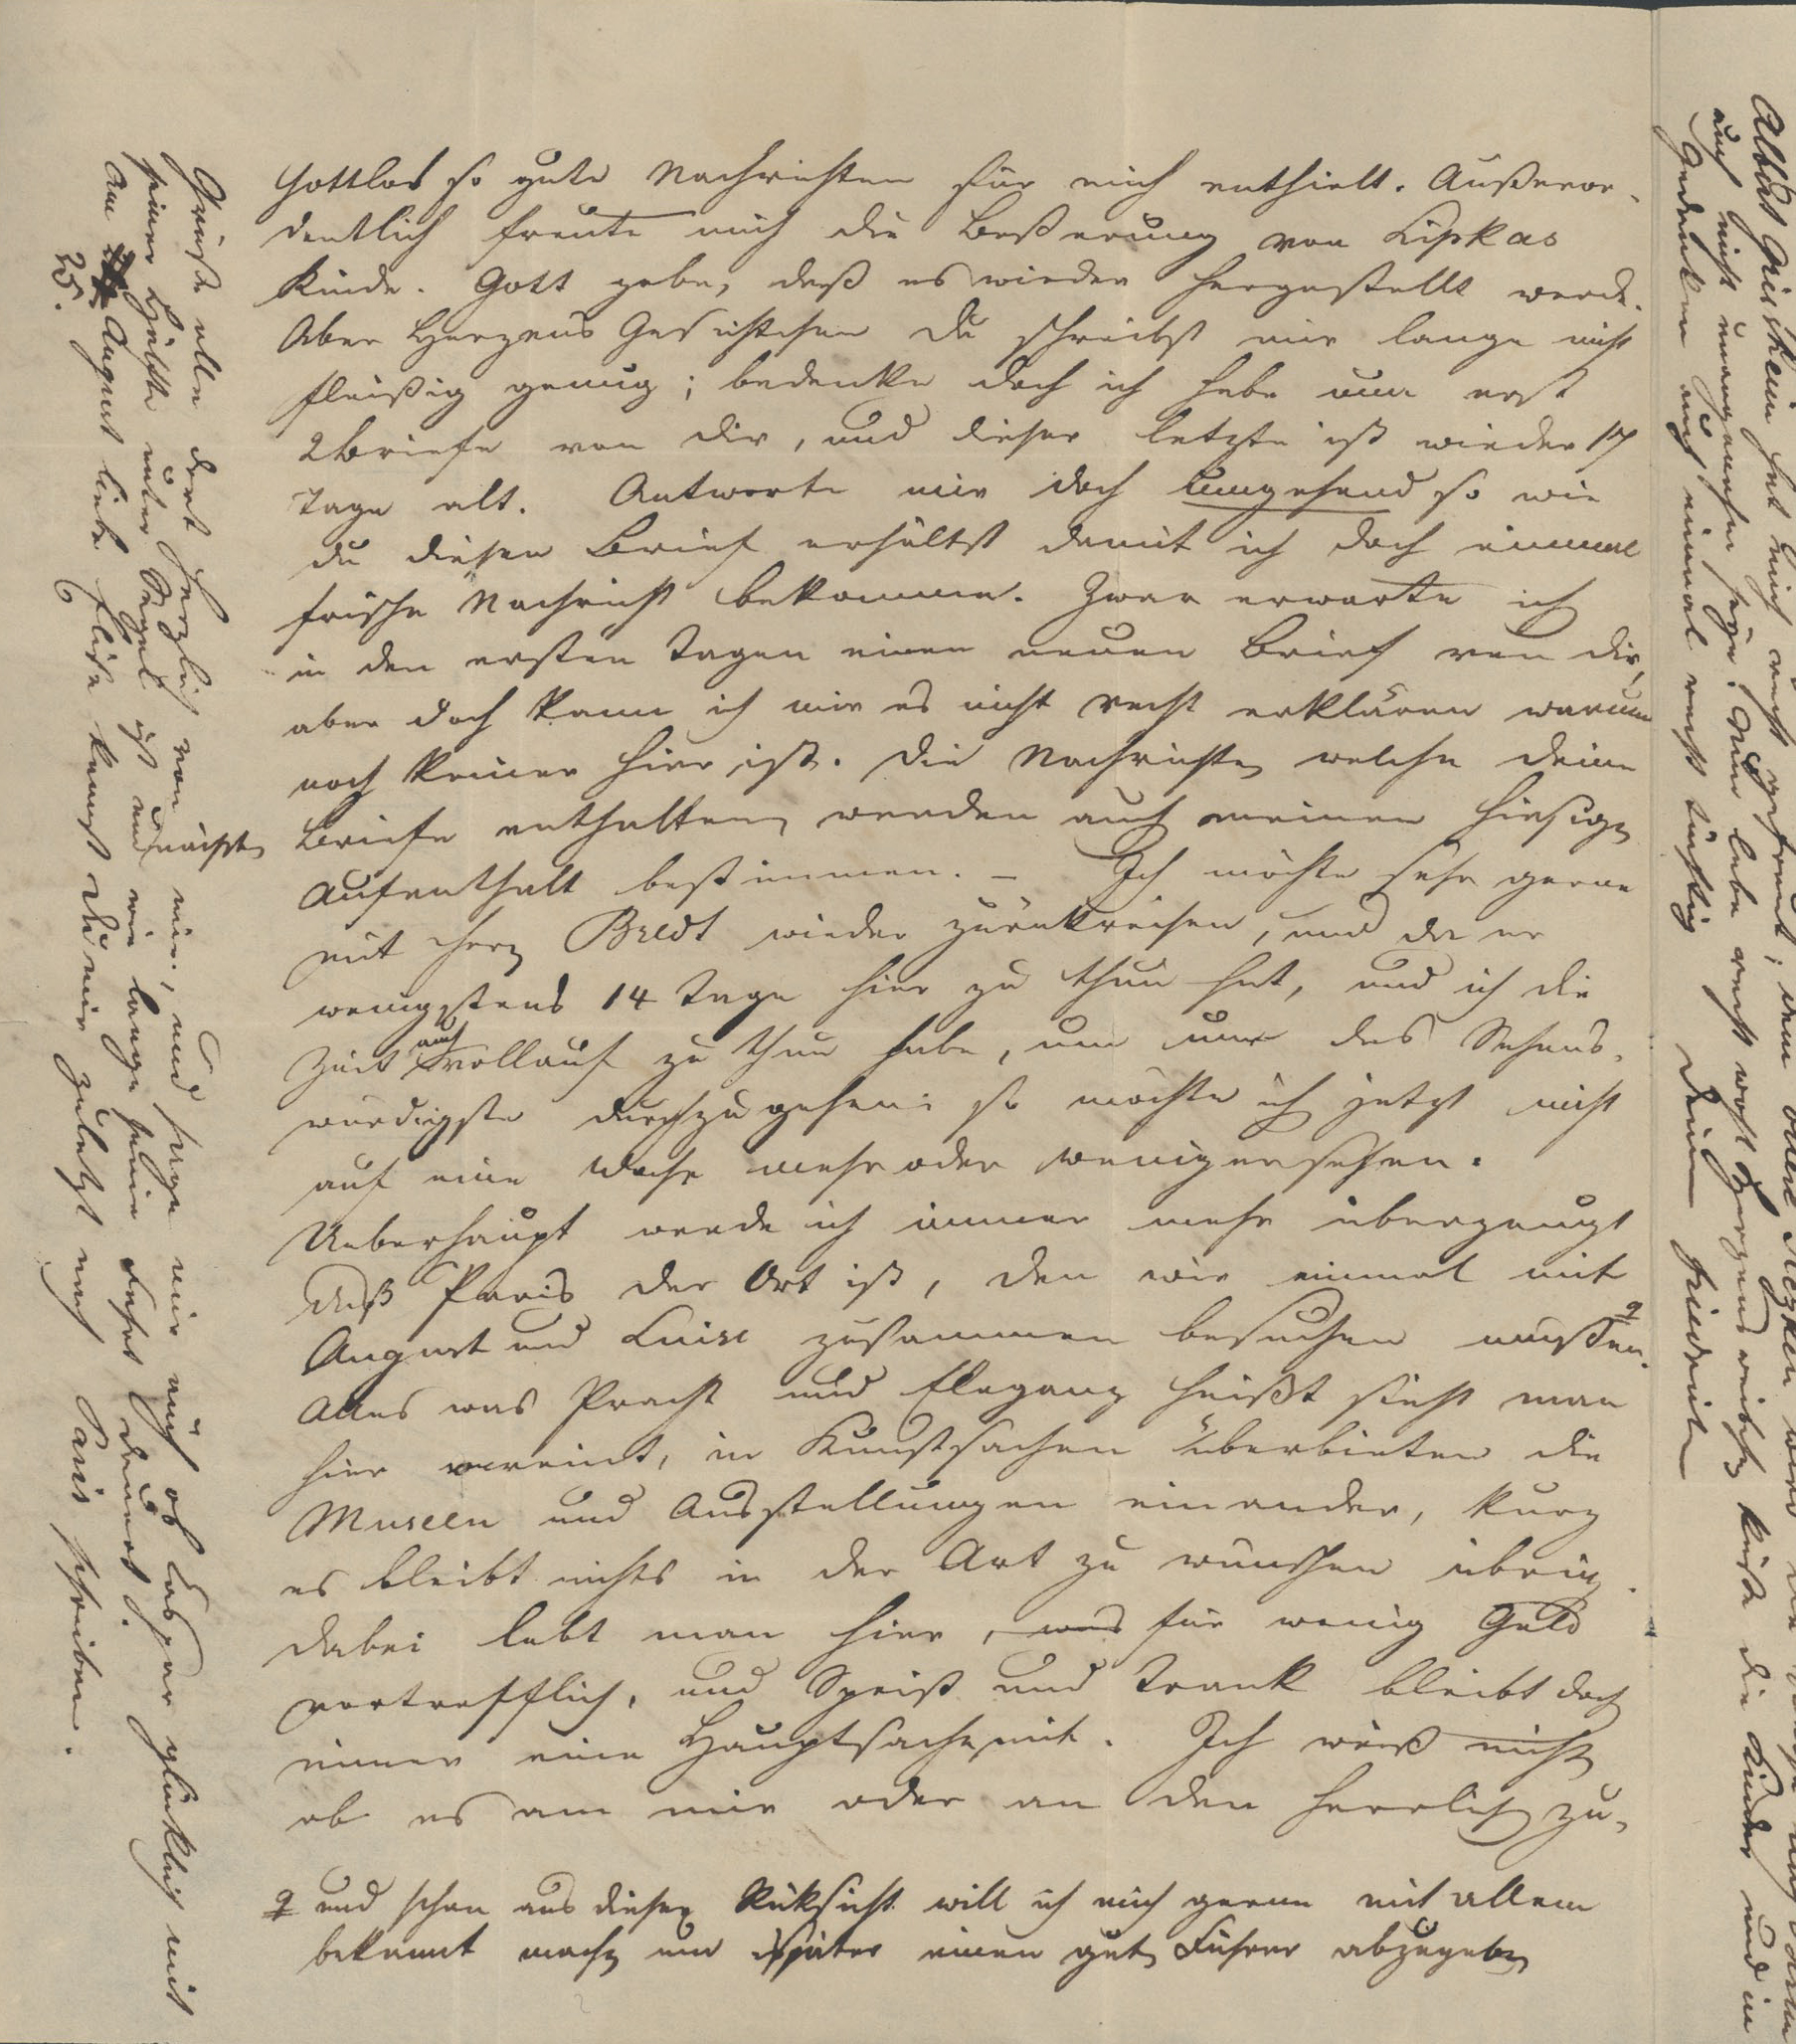 Gottlob so gute Nachrichten für mich enthielt. Außeror-
dentlich freute mich die Beßerung von Lipkas
Kinde. Gott gebe, daß es wieder hergestellt werde.
Aber Herzens Gesichtchen du schreibst mir lange nicht
fleißig genug; bedenke doch ich habe nun erst
2 Briefe von dir, und dieser letzte ist wieder 17
Tage alt. Antworte mir doch umgehend so wie
du diesen Brief erhältst damit ich doch einmal
frische Nachricht bekomme. Zwar erwarte ich
in den ersten Tagen einen neuen Brief von dir,
aber doch kann ich mir es nicht recht erklären warum
noch keiner hier ist. Die Nachrichten welche deine
Briefe enthalten werden auch meinen hiesigen
Aufenthalt bestimmen. – Ich möchte sehr gerne
mit Herrn Bredt wieder zurükreisen, und da er
wenigstens 14 Tage hier zu thun hat, und ich die
Zeit auch vollauf zu thun habe, um nur das Sehens-
würdigste durchzugehen: so möchte ich jetzt nicht
auf eine Woche mehr oder weniger sehen.
Ueberhaupt werde ich immer mehr überzeugt
daß Paris der Ort ist, den wir einmal mit
August und Luise zusammen besuchen müßen.
Alles was Pracht und Eleganz heißt sieht man
hier vereint, in Kunstsachen überbieten die
Museen und Ausstellungen einander, kurz
es bleibt nichts in der Art zu wünschen übrig.
Dabei lebt man hier, was für wenig Geld
vortrefflich, und Speiß und Trank bleibt doch
immer eine Hauptsache mit. Ich weiß nicht
ob es an mir oder an den herrlich zu-
und schon aus dieser Rüksicht will ich mich gerne mit allem
bekannt machen um später einen guten Führer abzugeben
Grüße alle dort herzlich von mir, und sage mir auch ob Caspar glüklich mit
seiner Hälfte unter Segel ist und wie lange seine Fahrt dauert.
Am August liebe kannst du mir zuletzt noch nach Paris schreiben.
25.
Albert hat mich recht gefreut;
auch nicht unangenehm sein. Nun lebe recht wohl Herzens küße die Kinder und in
Gedanken auch einmal recht tüchtig Deinen Friedrich